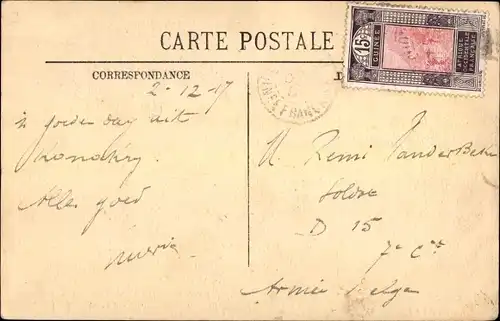 CARTE POSTALE
CORRESPONDANCE
15c
GUINÉE
AFRIQUE
OCCIDENTALE
FRANÇAISE
2-12-17
goeden dag uit
Konakry
Alles goed
Maria
M Remi VanderBeke
Soldat
D 15
7e Cie
Armée Belge